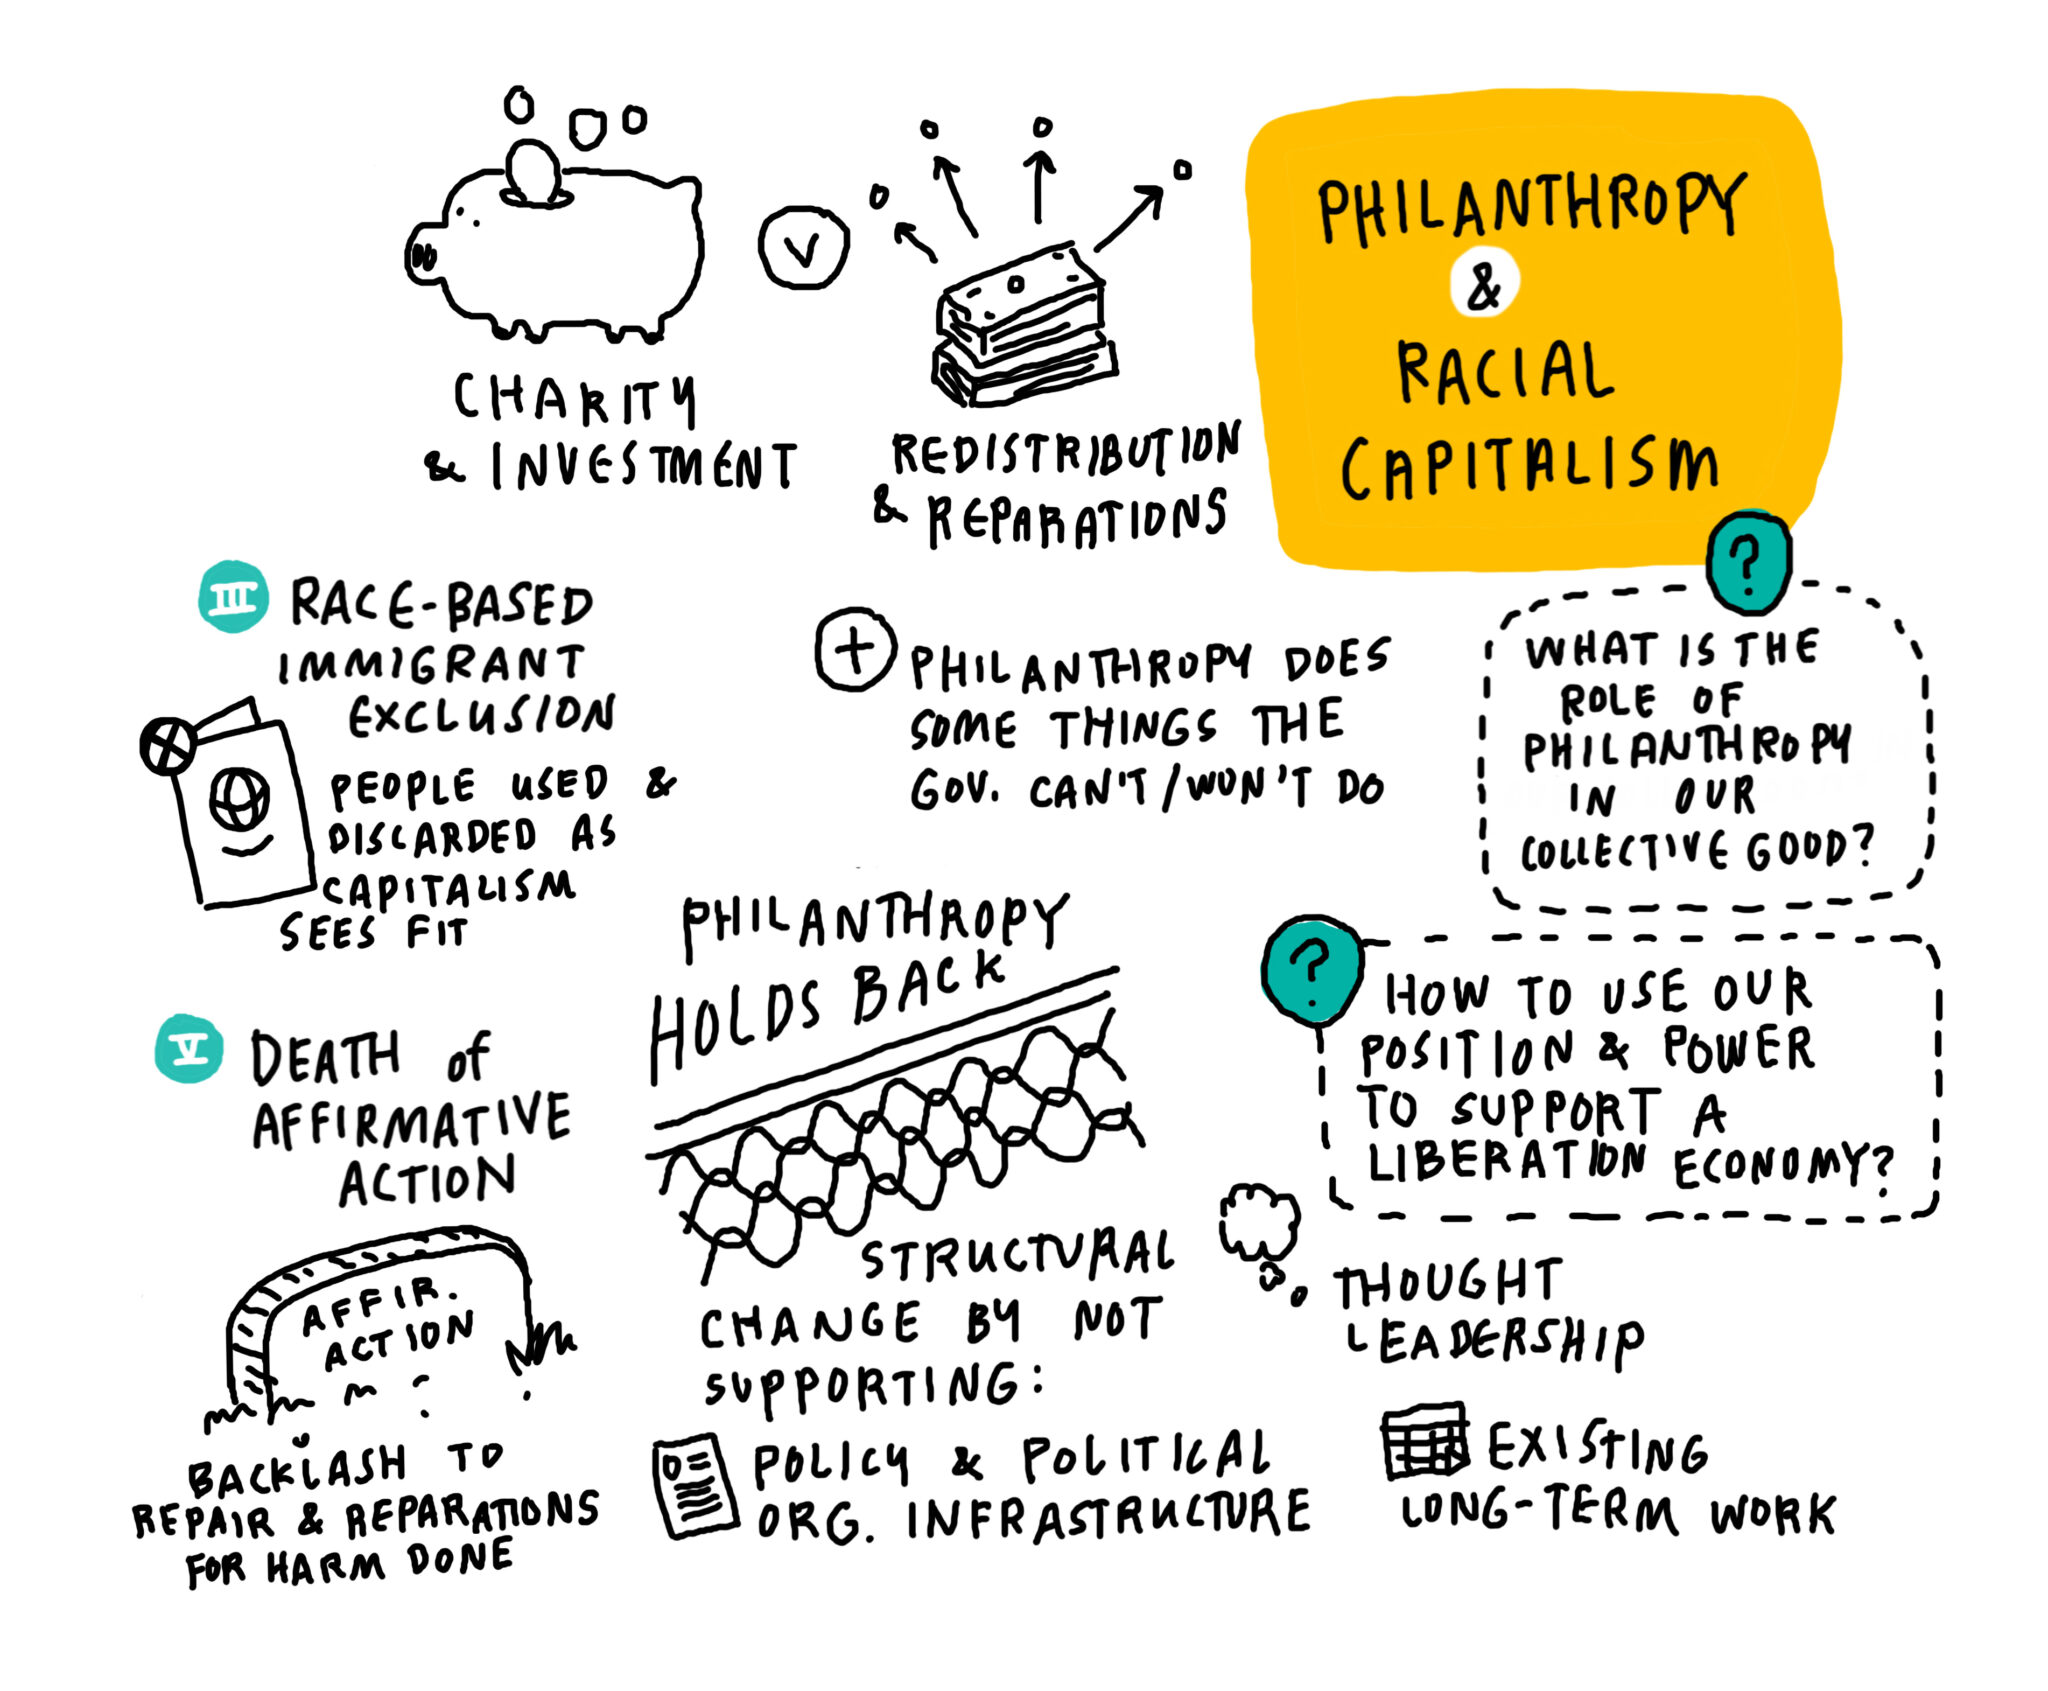 PHILANTHROPY
&
RACIAL
CAPITALISM
CHARITY
& INVESTMENT
V
REDISTRIBUTION
& REPARATIONS
III RACE-BASED
IMMIGRANT
EXCLUSION
PEOPLE USED &
DISCARDED AS
CAPITALISM
SEES FIT
V DEATH of
AFFIRMATIVE
ACTION
AFFIR.
ACTION
BACKLASH TO
REPAIR & REPARATIONS
FOR HARM DONE
+ PHILANTHROPY DOES
SOME THINGS THE
GOV. CAN'T/WON'T DO
PHILANTHROPY
HOLDS BACK
STRUCTURAL
CHANGE BY NOT
SUPPORTING:
POLICY & POLITICAL
ORG. INFRASTRUCTURE
?
WHAT IS THE
ROLE OF
PHILANTHROPY
IN OUR
COLLECTIVE GOOD?
?
HOW TO USE OUR
POSITION & POWER
TO SUPPORT A
LIBERATION ECONOMY?
THOUGHT
LEADERSHIP
EXISTING
LONG-TERM WORK